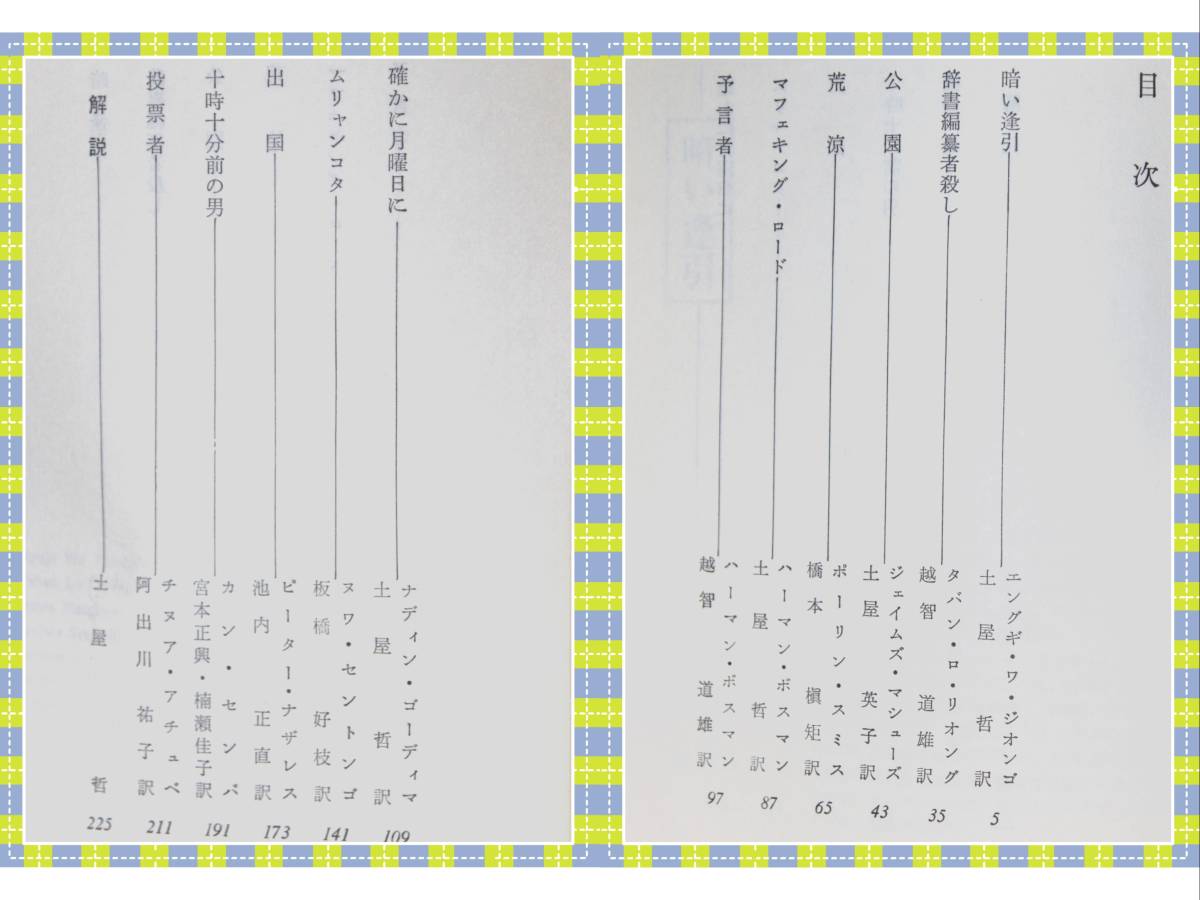 目次
暗い逢引
エングギ・ワ・ジオンゴ
土屋哲訳
5
辞書編纂者殺し
タバン・ロ・リオング
越智道雄訳
35
公園
ジェイムズ・マシューズ
土屋英子訳
43
荒涼
ポーリン・スミス
橋本槇矩訳
65
マフェキング・ロード
ハーマン・ボスマン
土屋哲訳
87
予言者
ハーマン・ボスマン
越智道雄訳
97
確かに月曜日に
ナディン・ゴーディマ
土屋哲訳
109
ムリャンコタ
ヌワ・セントンゴ
板橋好枝訳
141
出国
ピーター・ナザレス
池内正直訳
173
十時十分前の男
カン・センバ
宮本正興・楠瀬佳子訳
191
投票者
チヌア・アチュベ
阿出川祐子訳
211
解説
土屋哲
225